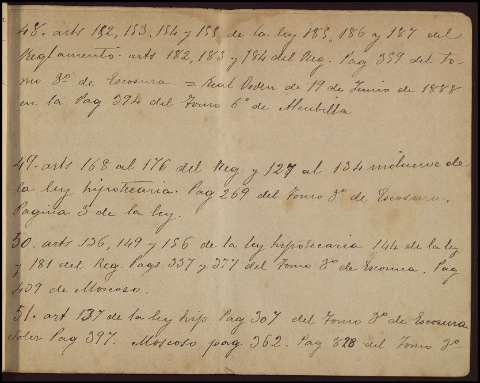 48. arts 182, 153, 154 y 158 de la ley 185, 186 y 187 del
Reglamento. arts 182, 183 y 184 del Reg. Pag 359 del to-
mo 3º de Escosura = Real Orden de 19 de Junio de 1888
en la Pag 394 del Tomo 6º de
49. arts 168 al 176 del Reg y 127 al 134 inclusive de
la ley hipotecaria. Pag 269 del Tomo 3º de Escosura.
Pagina 3 de la ley.
50. arts 136, 149 y 156 de la ley hipotecaria 144 de la ley
y 181 del Reg. Pags 337 y 371 del Tomo 3º de Escosura. Pag
409 de Moscoso.
51. art 137 de la ley hip. Pag 307 del Tomo 3º de Escosura
Pag 397. Moscoso pag. 362. Pag 328 del Tomo 3º